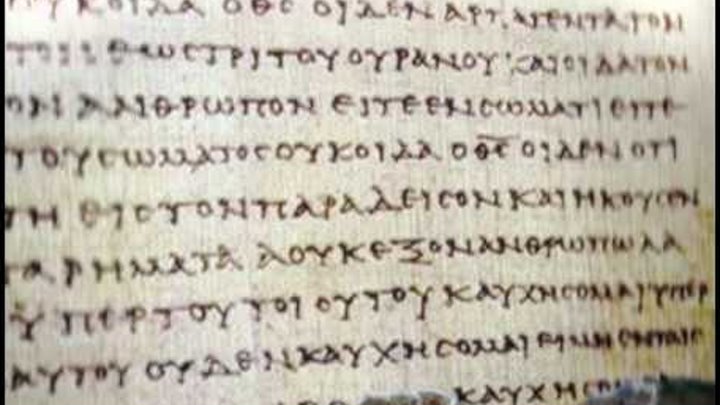 ΟΥΚ ΟΙΔΑ Ο ΘΣ ΟΙΔΕΝ ΑΡΠΑΓΕΝΤΑ ΤΟΝ
ΕΩΣ ΤΡΙΤΟΥ ΟΥΡΑΝΟΥ ΚΑΙ ΟΙΔΑ ΤΟΝ
ΑΝΘΡΩΠΟΝ ΕΙΤΕ ΕΝ ΣΩΜΑΤΙ ΕΙΤΕ
ΤΟΥ ΣΩΜΑΤΟΣ ΟΥΚ ΟΙΔΑ Ο ΘΣ ΟΙΔΕΝ ΟΤΙ
ΓΗ ΕΙΣ ΤΟΝ ΠΑΡΑΔΕΙΣΟΝ ΚΑΙ ΗΚΟΥΣΕΝ
ΤΑ ΡΗΜΑΤΑ Α ΟΥΚ ΕΞΟΝ ΑΝΘΡΩΠΩ ΛΑ
ΥΠΕΡ ΤΟΥ ΤΟΙΟΥΤΟΥ ΚΑΥΧΗΣΟΜΑΙ ΥΠΕΡ
ΑΥΤΟΥ ΟΥΔΕΝ ΚΑΥΧΗΣΟΜΑΙ ΕΙ ΜΗ ΕΝ ΤΑΙΣ
ΚΑΥΧΗΣ